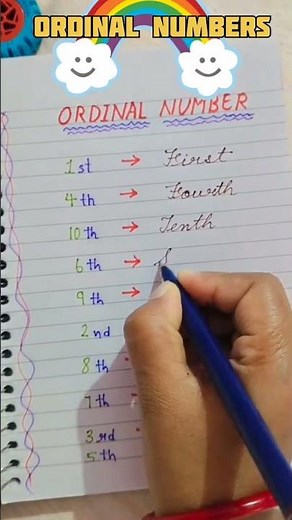 ORDINAL NUMBERS
ORDINAL NUMBER
1st → First
4th → Fourth
10th → Tenth
6th → S
9th →
2nd
8th
7th
3rd
5th